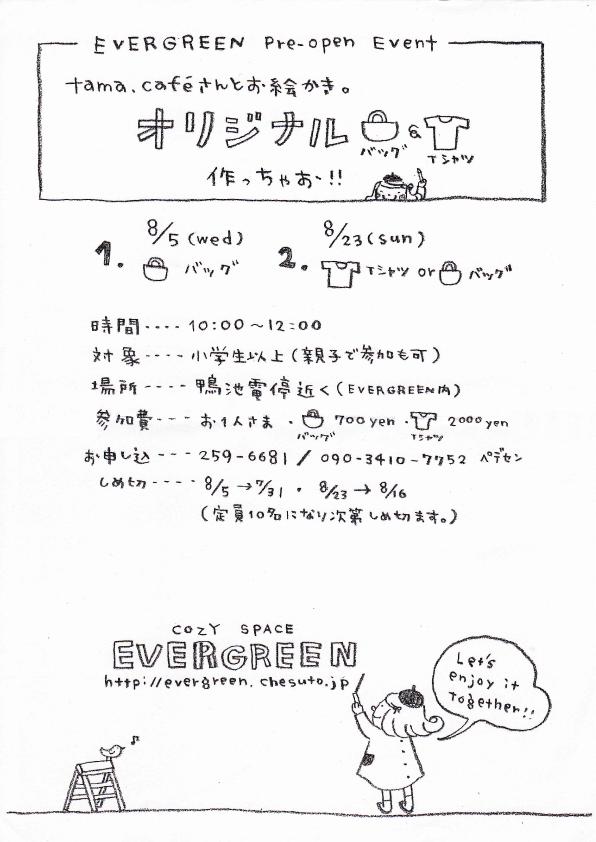 EVERGREEN Pre-open Event
tama.caféさんとお絵かき。
オリジナル &
バッグ Tシャツ
作っちゃお〜!!
1. 8/5 (wed)
バッグ
2. 8/23 (sun)
Tシャツ or バッグ
時間・・・・10:00〜12:00
対象・・・・小学生以上(親子で参加も可)
場所・・・・鴨池電停近く(EVERGREEN内)
参加費・・・お1人さま ・ 700yen ・ 2000yen
バッグ Tシャツ
お申し込・・・259-6681 / 090-3410-7752 ペデセン
しめ切・・・・8/5→7/31 ・ 8/23→8/16
(定員10名になり次第しめ切ます。)
COZY SPACE
EVERGREEN
http://evergreen.chesuto.jp
Let's
enjoy it
together!!